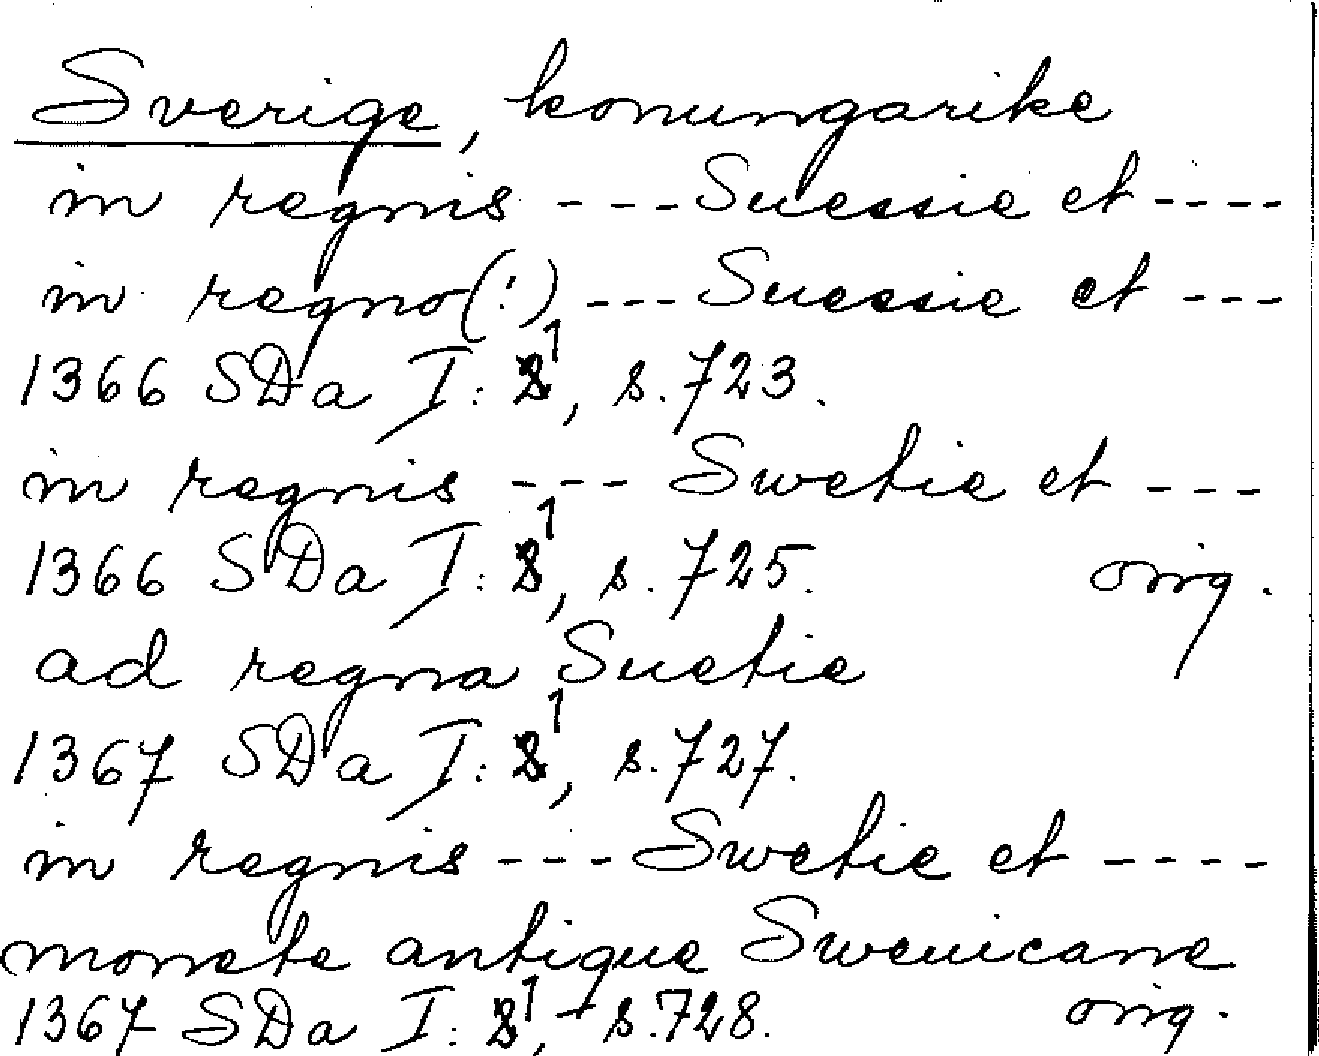 Sverige, konungarike
in regnis --- Suessie et ----
in regno(!) --- Suessie et ---
1366 SDa I: 1, s. 723.
in regnis --- Swetie et ---
1366 SDa I: 1, s. 725. orig.
ad regna Suetie
1367 SDa I: 1, s. 727.
in regnis --- Swetie et ----
monete antique Sweuicane
1367 SDa I: 1, s. 728. orig.